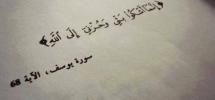 ﴿إِنَّمَا أَشْكُوا بَثِّي وَحُزْنِي إِلَى اللَّهِ﴾
سورة يوسف، الآية 68